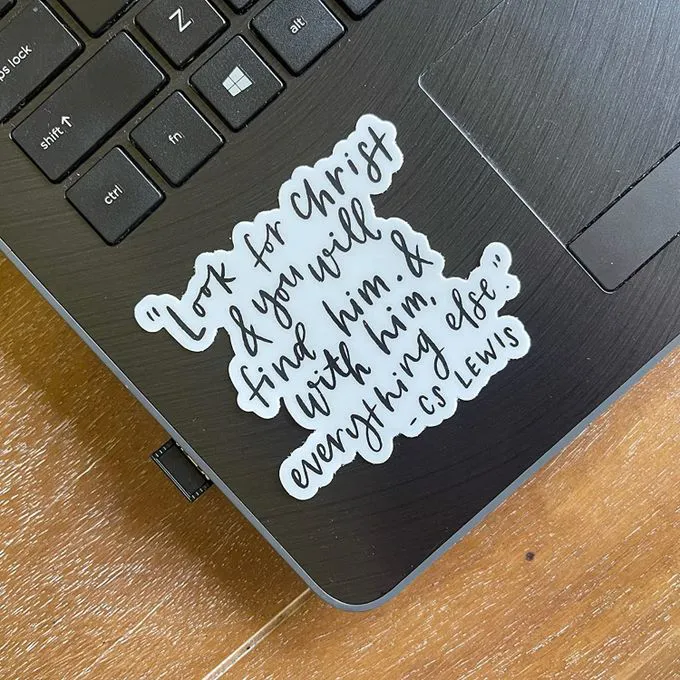 ps lock
Z
alt
shift
fn
ctrl
"Look for Christ
& you will
find him. &
with him,
everything else."
-CS LEWIS